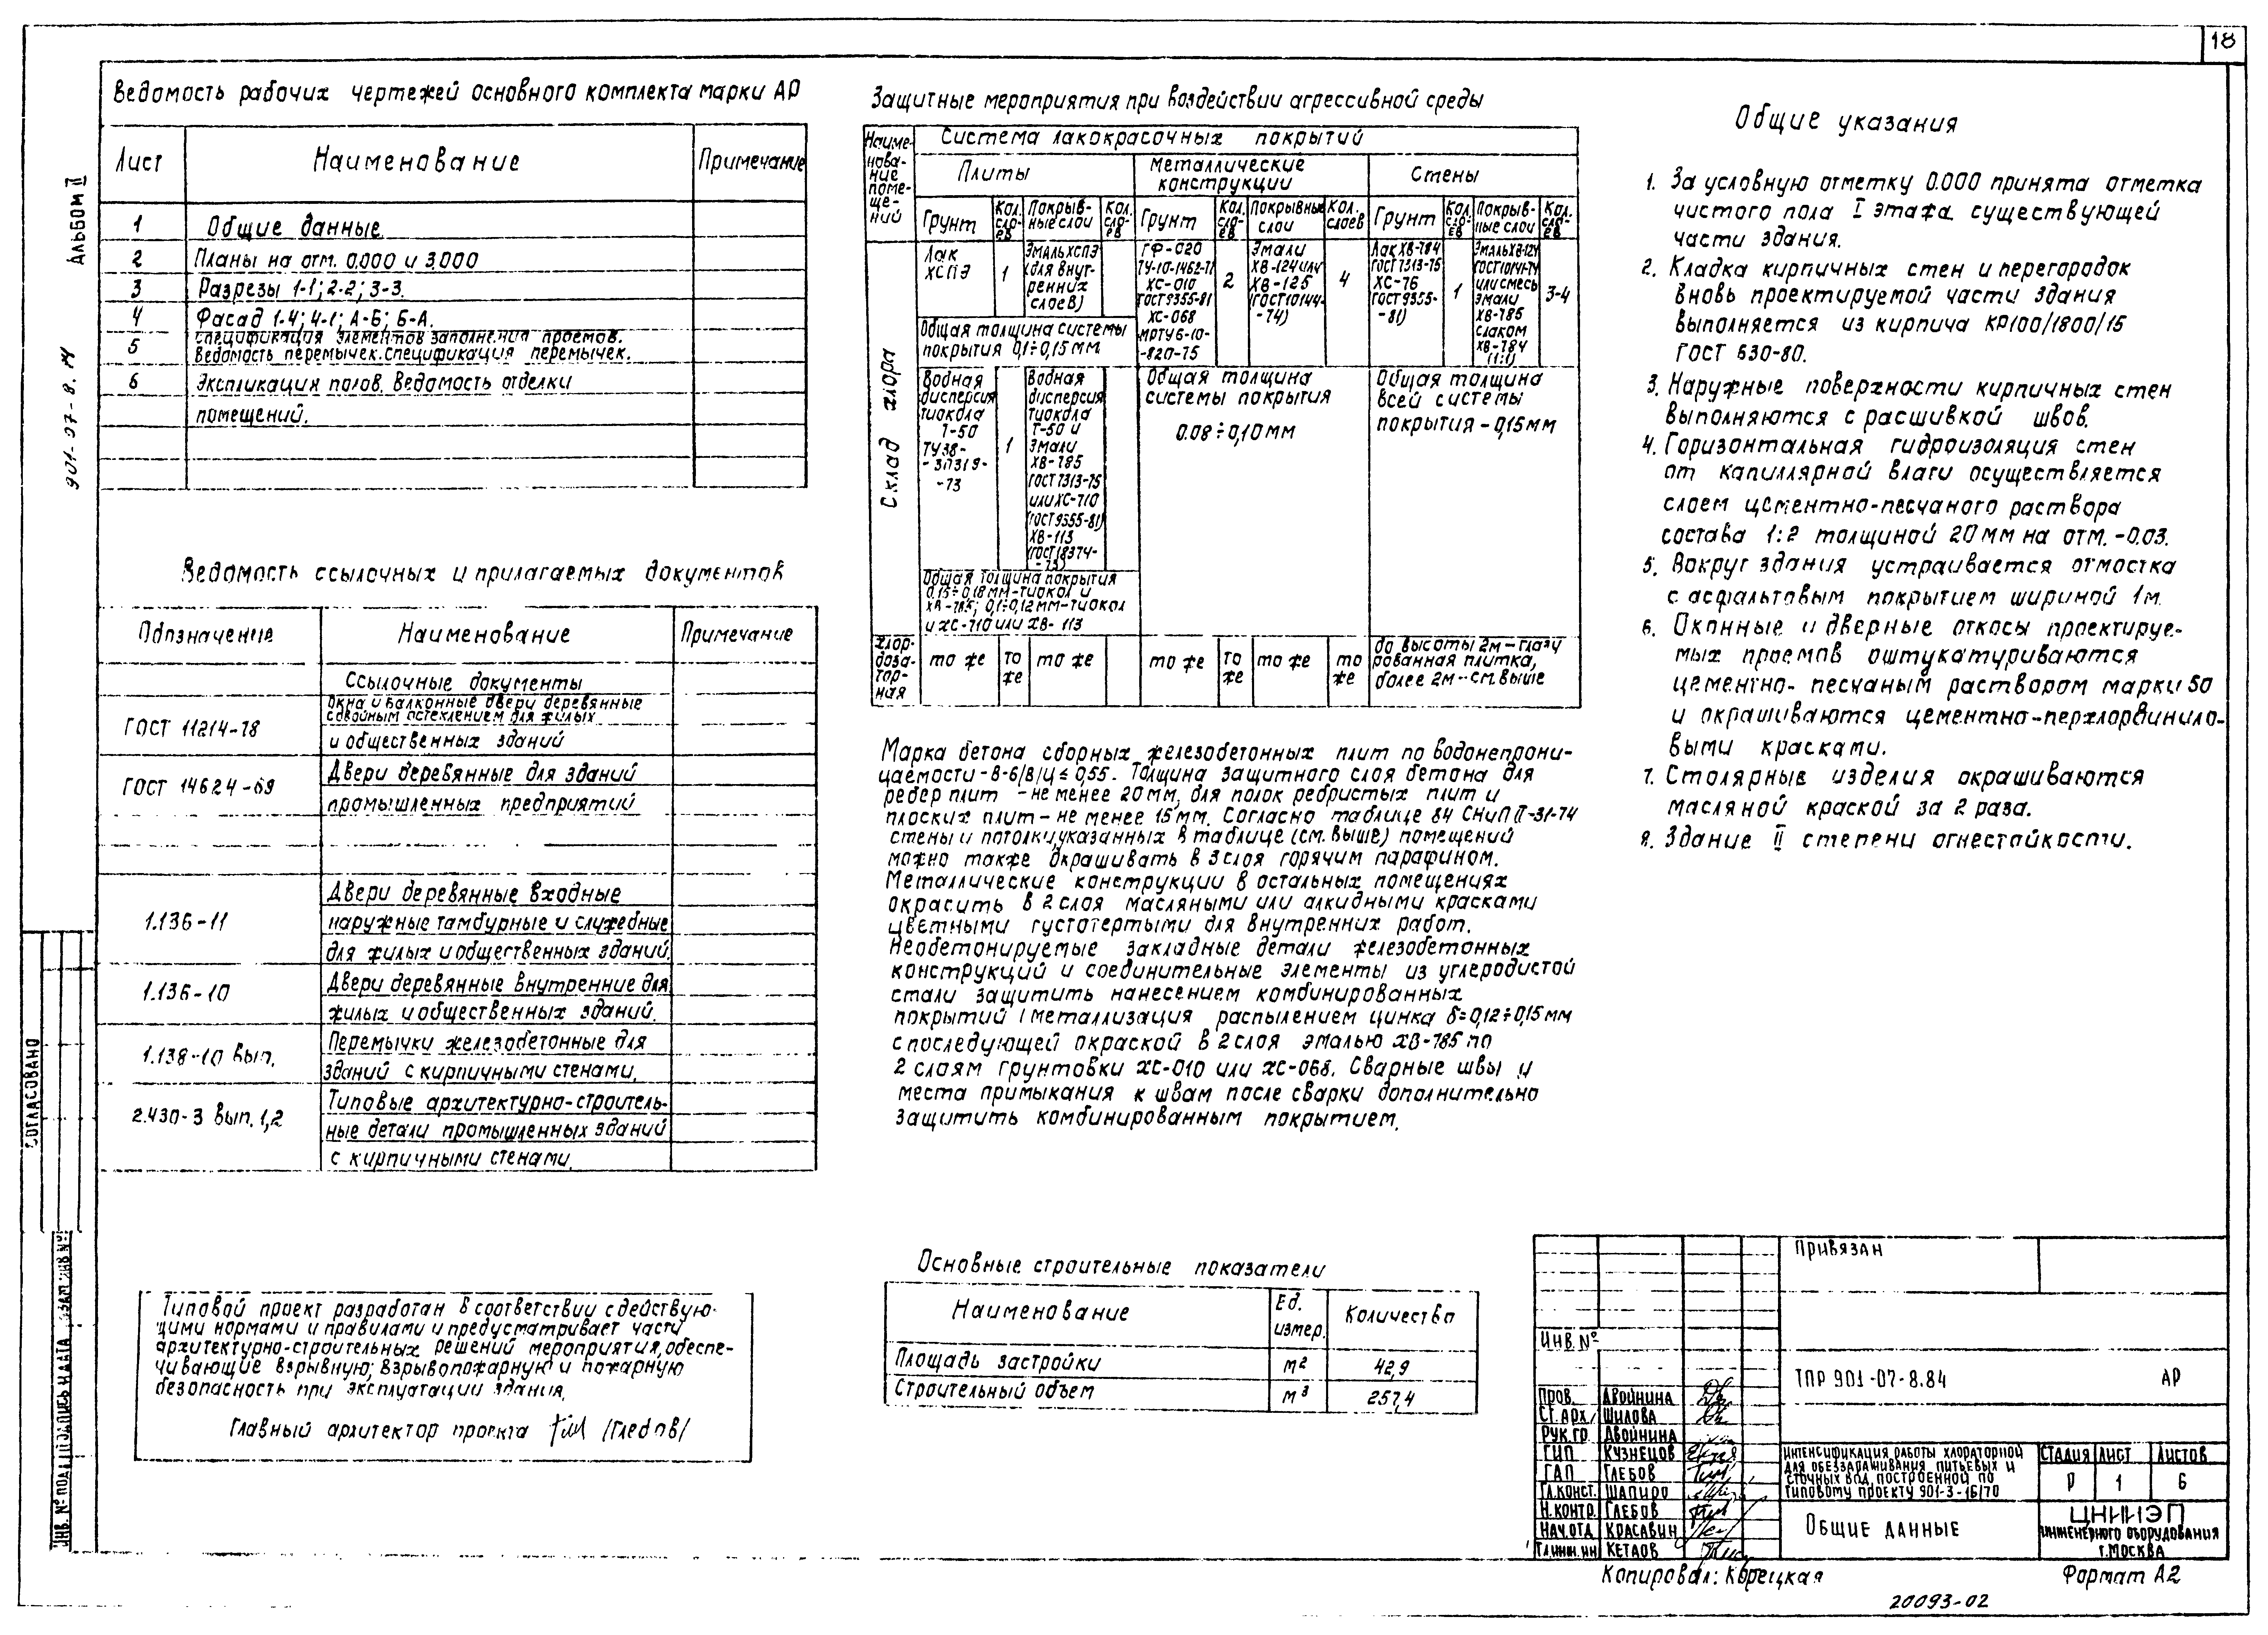 18
Альбом II
901-07-8.84
Ведомость рабочих чертежей основного комплекта марки АР
Лист Наименование Примечание
1 Общие данные.
2 Планы на отм. 0.000 и 3.000
3 Разрезы 1-1; 2-2; 3-3.
4 Фасад 1-4; 4-1; А-Б; Б-А.
5 Спецификация элементов заполнения проемов.
Ведомость перемычек. Спецификация перемычек.
6 Экспликация полов. Ведомость отделки
помещений.
Ведомость ссылочных и прилагаемых документов
Обозначение Наименование Примечание
Ссылочные документы
ГОСТ 11214-78 Окна и балконные двери деревянные
с двойным остеклением для жилых
и общественных зданий
ГОСТ 14624-69 Двери деревянные для зданий
промышленных предприятий
1.136-11 Двери деревянные входные
наружные тамбурные и служебные
для жилых и общественных зданий.
1.136-10 Двери деревянные внутренние для
жилых и общественных зданий.
1.138-10 вып. Перемычки железобетонные для
зданий с кирпичными стенами.
2.430-3 вып. 1,2 Типовые архитектурно-строитель-
ные детали промышленных зданий
с кирпичными стенами.
Типовой проект разработан в соответствии с действую-
щими нормами и правилами и предусматривает части
архитектурно-строительных решений мероприятия, обеспе-
чивающие взрывную; взрывопожарную и пожарную
безопасность при эксплуатации здания.
Главный архитектор проекта /Глебов/
Защитные мероприятия при воздействии агрессивной среды
Наиме-
нова-
ние
поме-
ще-
ний
Система лакокрасочных покрытий
Плиты
Металлические
конструкции
Стены
Грунт
Кол.
сло-
ев
Покрыв-
ные слои
Кол.
сло-
ев
Грунт
Кол.
сло-
ев
Покрывные
слои
Кол.
слоев
Грунт
Кол.
сло-
ев
Покрыв-
ные слои
Кол.
сло-
ев
Склад хлора
Лак
ХСПЭ
1
Эмаль ХСПЭ
(для внут-
ренних
слоев)
ГФ-020
ТУ-10-1462-71
ХС-010
ГОСТ 9355-81
ХС-068
МРТУ6-10-
-820-75
2
Эмали
ХВ-124 или
ХВ-125
(ГОСТ 10144-
-74)
4
Лак ХВ-784
ГОСТ 7313-75
ХС-76
ГОСТ 9355-
-81)
1
Эмаль ХВ-124
ГОСТ 10141-74
или смесь
эмали
ХВ-785
с лаком
ХВ-784
(1:1)
3-4
Общая толщина системы
покрытия 0,1÷0,15 мм
Водная
дисперсия
тиокола
Т-50
ТУ38-
-3П319-
-73
1
Водная
дисперсия
тиокола
Т-50 и
эмали
ХВ-785
ГОСТ 7313-75
или ХС-710
(ГОСТ 9355-81)
ХВ-113
(ГОСТ 18374-
-73)
Общая толщина
системы покрытия
0.08÷0,10 мм
Общая толщина
всей системы
покрытия - 0,15 мм
Общая толщина покрытия
0,15÷0,18 мм-тиокол и
ХВ-785; 0,1÷0,12 мм-тиокол
и ХС-710 или ХВ-113
Хлор-
доза-
тор-
ная
то же
то
же
то же
то же
то
же
то же
то
же
до высоты 2м-глазу
рованная плитка,
более 2м-см. выше
Марка бетона сборных железобетонных плит по водонепрони-
цаемости - В-6/В/Ц ≤ 0,55. Толщина защитного слоя бетона для
ребер плит - не менее 20 мм, для полок ребристых плит и
плоских плит - не менее 15 мм. Согласно таблице 84 СНиП II-31-74
стены и потолки, указанных в таблице (см. выше) помещений
можно также окрашивать в 3 слоя горячим парафином.
Металлические конструкции в остальных помещениях
окрасить в 2 слоя масляными или алкидными красками
цветными густотертыми для внутренних работ.
Необетонируемые закладные детали железобетонных
конструкций и соединительные элементы из углеродистой
стали защитить нанесением комбинированных
покрытий (металлизация распылением цинка δ=0,12÷0,15 мм
с последующей окраской в 2 слоя эмалью ХВ-785 по
2 слоям грунтовки ХС-010 или ХС-068. Сварные швы и
места примыкания к швам после сварки дополнительно
защитить комбинированным покрытием.
Основные строительные показатели
Наименование Ед. измер. Количество
Площадь застройки м² 42,9
Строительный объем м³ 257,4
Общие указания
1. За условную отметку 0.000 принята отметка
чистого пола I этажа существующей
части здания.
2. Кладка кирпичных стен и перегородок
вновь проектируемой части здания
выполняется из кирпича КР100/1800/15
ГОСТ 530-80.
3. Наружные поверхности кирпичных стен
выполняются с расшивкой швов.
4. Горизонтальная гидроизоляция стен
от капиллярной влаги осуществляется
слоем цементно-песчаного раствора
состава 1:2 толщиной 20 мм на отм. -0.03.
5. Вокруг здания устраивается отмостка
с асфальтовым покрытием шириной 1м.
6. Оконные и дверные откосы проектируе-
мых проемов оштукатуриваются
цементно-песчаным раствором марки 50
и окрашиваются цементно-перхлорвинило-
выми красками.
7. Столярные изделия окрашиваются
масляной краской за 2 раза.
8. Здание II степени огнестойкости.
Привязан
Инв. №
ТПР 901-07-8.84 АР
Пров. Двойнина
Ст. арх. Шилова
Рук. гр. Двойнина
ГИП Кузнецов
ГАП Глебов
Гл. конст. Шапиро
Н. контр. Глебов
Нач. отд. Красавин
Гл. инж. ин Кетаов
Интенсификация работы хлораторной
для обеззараживания питьевых и
сточных вод, построенной по
типовому проекту 901-3-16/70
Стадия Лист Листов
Р 1 6
Общие данные
ЦНИИЭП
инженерного оборудования
г. Москва
Копировал: Корецкая
Формат А2
20093-02
Согласовано
Инв. № подл. Подпись и дата Взам. инв. №